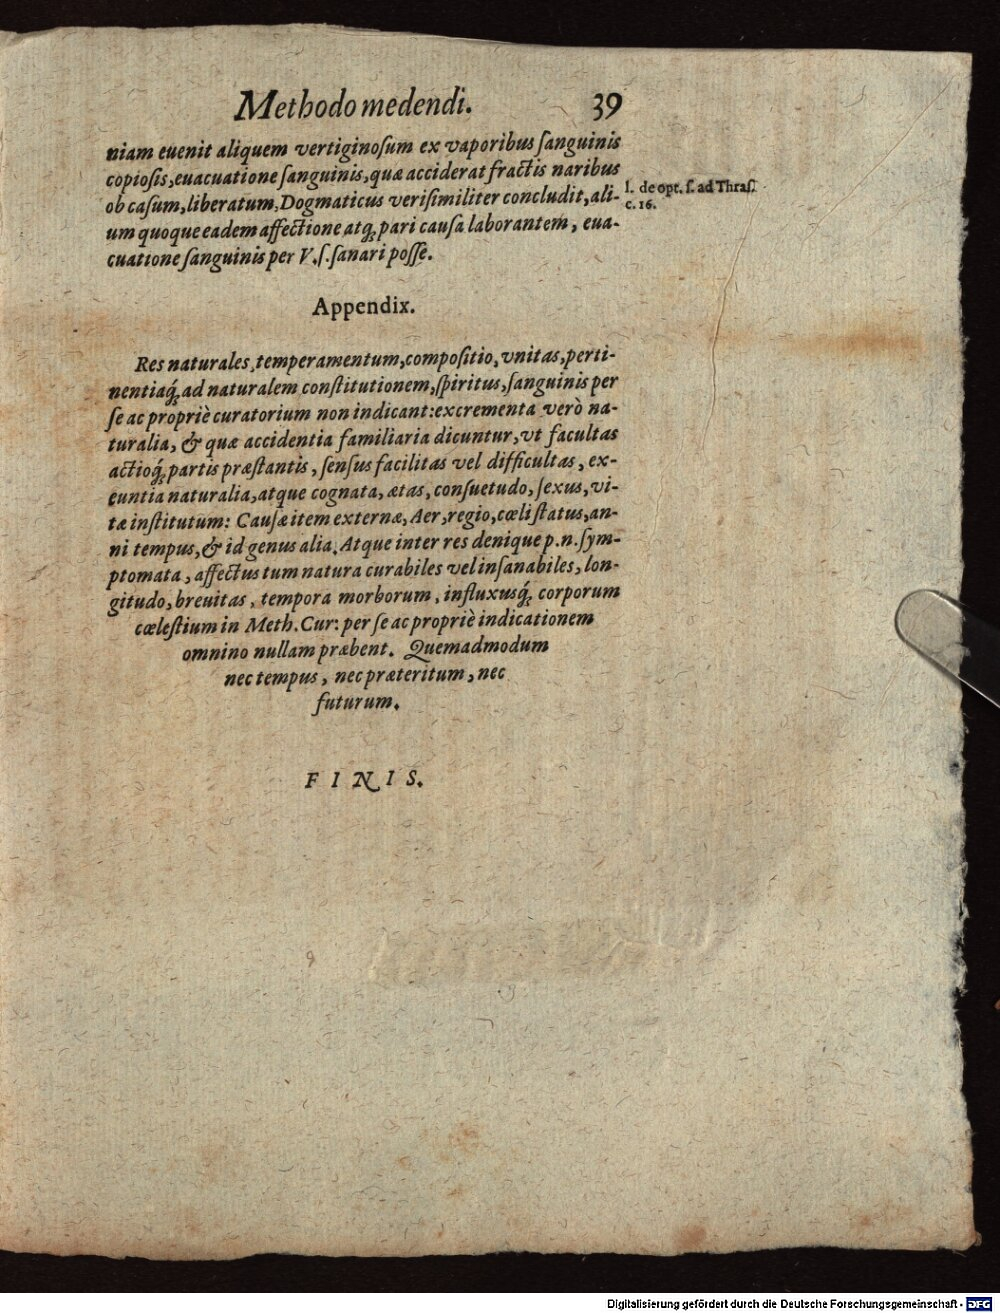 Methodo medendi. 39
niam euenit aliquem vertiginoſum ex vaporibus ſanguinis
copioſis, euacuatione ſanguinis, quæ acciderat fractis naribus
ob caſum, liberatum, Dogmaticus veriſimiliter concludit, ali-
um quoque eadem affectione atq́; pari cauſa laborantem, eua-
cuatione ſanguinis per V. ſ. ſanari poſſe.
l. de opt. ſ. ad Thraſ.
c. 16.
Appendix.
Res naturales, temperamentum, compoſitio, vnitas, perti-
nentiaq́; ad naturalem conſtitutionem, ſpiritus, ſanguinis per
ſe ac propriè curatorium non indicant: excrementa verò na-
turalia, & quæ accidentia familiaria dicuntur, vt facultas
actioq́; partis præſtantis, ſenſus facilitas vel difficultas, ex-
euntia naturalia, atque cognata, ætas, conſuetudo, ſexus, vi-
tæ inſtitutum: Cauſæ item externæ, Aer, regio, cœli ſtatus, an-
ni tempus, & id genus alia. Atque inter res denique p. n. ſym-
ptomata, affectus tum natura curabiles vel inſanabiles, lon-
gitudo, breuitas, tempora morborum, influxusq́; corporum
cœleſtium in Meth. Cur: per ſe ac propriè indicationem
omnino nullam præbent. Quemadmodum
nec tempus, nec præteritum, nec
futurum.
FINIS.
Digitalisierung gefördert durch die Deutsche Forschungsgemeinschaft - DFG